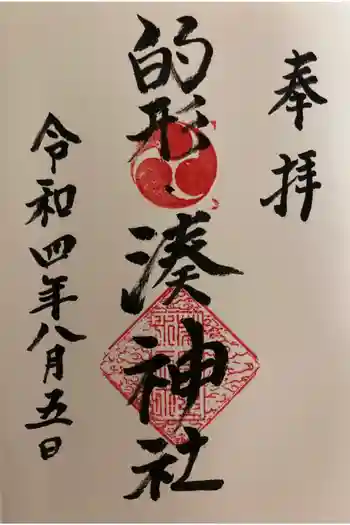 奉拝
的形湊神社
令和四年八月五日